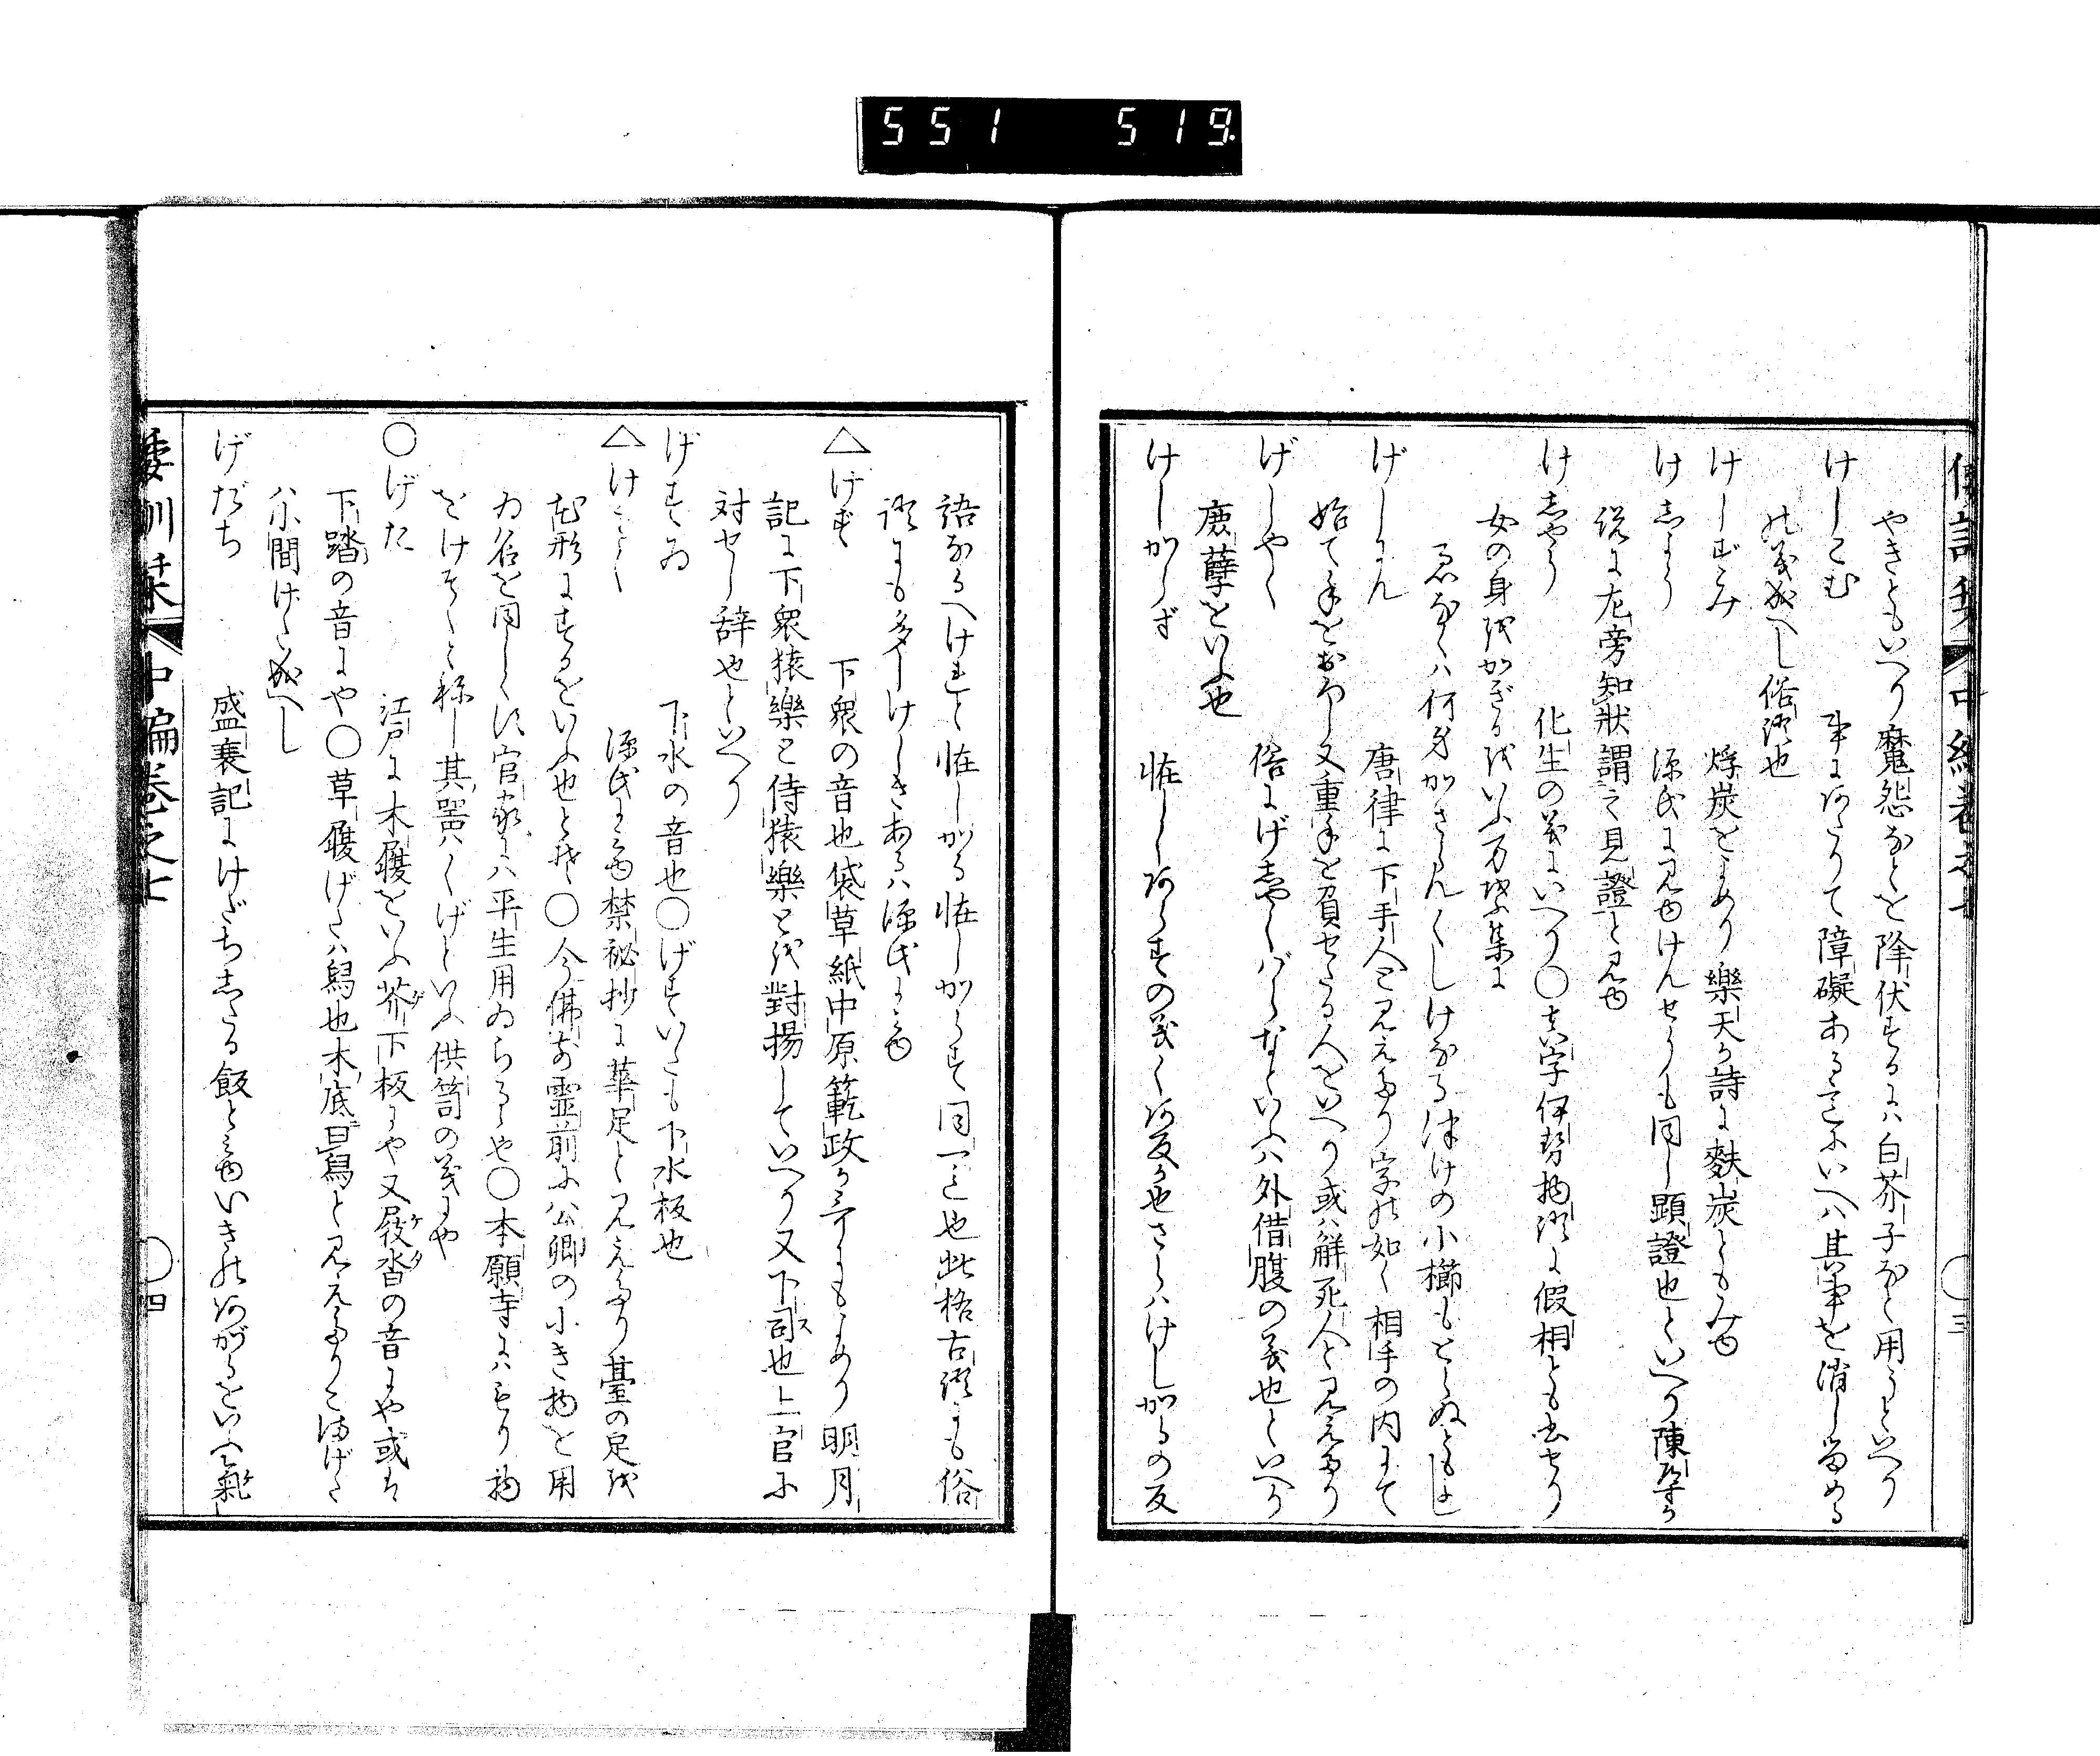 551 519
やきともいへり魔怨なとを降伏するには白芥子なと用うといへり
けしこむ 事にあたりて障礙ある二つにいへは其事を消し留める
の義成へし俗語也
けしずみ 烰炭をよめり樂天か詩に麩炭ともみゆ
けしよう 源氏に見ゆけんせうも同し顕證也といへり陳
説に左旁知狀謂之見證と見ゆ
けしやう 化生の義にいへり〇真字伊勢物語に假相とも書せり
女の身をかぎるをいふ万葉集に
君なくは何身かさらんくしけなる津けの小櫛もとらぬともよし
げしにん 唐律に下手人と見えたり字の如く相手の内にて
始て手をおろし又重手を負せたる人をいへり或は解死人と見えたり
げしやく 俗にげしやくばらなといふは外借腹の義也といへり
庶孽をいふ也
けしからず 怪しからすの義く反か也さらはけしかるの反
語なるへけれと怪しかる怪しからす同し也此格古語にも俗
語にも多しけしきあるは源氏にみゆ
△げす 下衆の音也袋草紙中原範政か哥にもよめり明月
記に下衆猿樂と侍猿樂とを對揚していへり又下司也上官に
対せし辞也といへり
げすゐ 下水の音也〇げすいたも下水板也
△けそく 源氏にみゆ禁祕抄に華足と見えたり臺の足を
花形にするをいふ也とそ〇今佛前靈前に公卿の小き物を用
ゐ名を同しくす官家には平生用ゐらるゝや〇本願寺にはもり物
をけそくと称し其器はくげといふ供笥の義にや
〇げた 江戸に木履をいふ芥下板にや又屐沓の音にや或は
下踏の音にや〇草履げたは舄也木底曰舄と見えたりこまげた
は小間げた成へし
げだち 盛衰記にけだちしたる飯とみゆいきのあがるをいへ氣
倭訓栞 中編巻之七 〇三
倭訓栞 中編巻之七 〇四